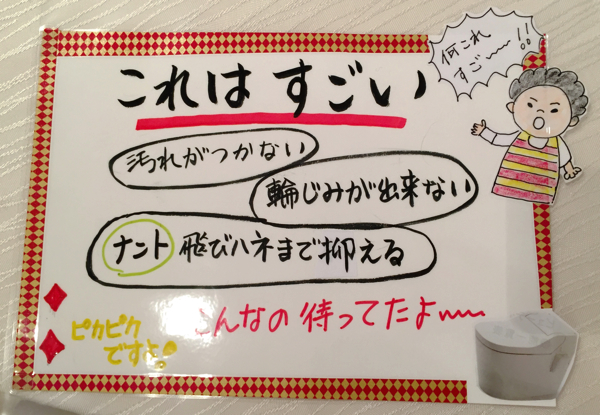 何これ
すご〜〜!!
これは すごい
汚れがつかない
輪じみが出来ない
ナント 飛びハネまで抑える
こんなの 待ってたよ〜〜
ピカピカ
ですよ!